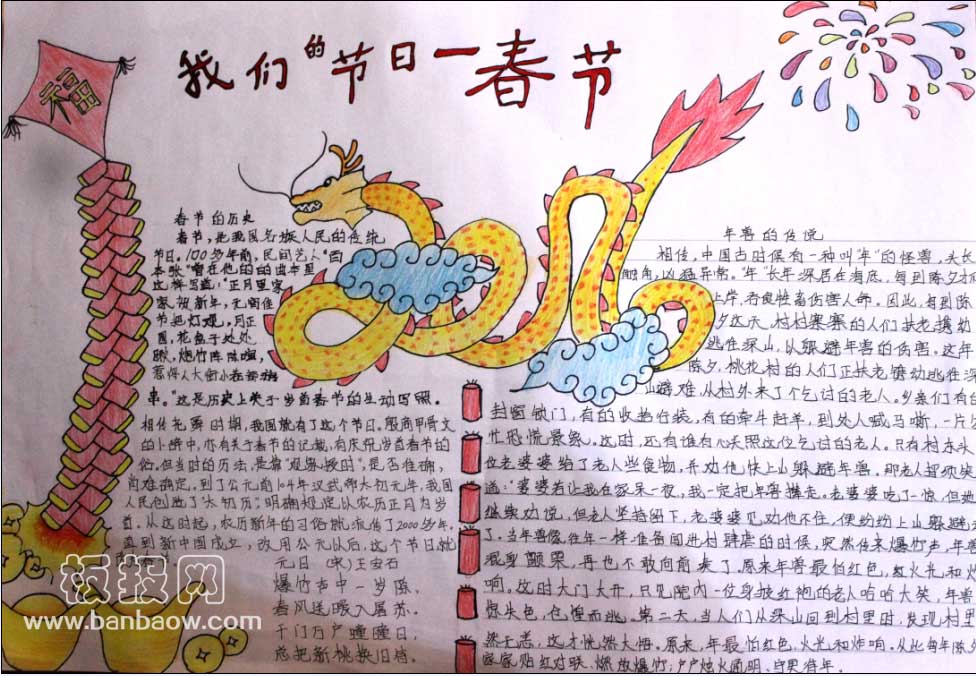 我们的节日一春节
福
春节的历史
春节，是我国各族人民的传统
节日。100多年前，民间艺人"百
本张"曾在他的曲本里
这样写道："正月里家
家贺新年，元宵佳
节把灯观，月正
圆，花盒子处处
瞅，炮竹阵阵喧，
惹得人大街小巷
串。"这是历史上关于岁首春节的生动写照。
相传尧舜时期，我国就有了这个节日，殷商甲骨文
的卜辞中，亦有关于春节的记载，有庆祝岁首春节的
俗，但当时的历法，是靠"观象授时"，是否准确，
尚难确定。到了公元前104年汉武帝太初元年，我国
人民创造了"太初历"，明确规定以农历正月为岁
首。从这时起，农历新年的习俗就流传了2000多年。
直到新中国成立，改用公元以后，这个节日就
元日 (宋)王安石
爆竹声中一岁除，
春风送暖入屠苏。
千门万户曈曈日，
总把新桃换旧符。
年兽的传说
相传，中国古时候有一种叫"年"的怪兽，头长
触角，凶猛异常。"年"长年深居在海底，每到除夕才
上岸，吞食牲畜伤害人命。因此，每到除
夕这天，村村寨寨的人们扶老携幼
逃往深山，以躲避年兽的伤害。这年
除夕，桃花村的人们正扶老携幼逃往深
山避难，从村外来了个乞讨的老人。乡亲们有的
封窗锁门，有的收拾行装，有的牵牛赶羊，到处人喊马嘶，一片
忙恐慌景象。这时，还有谁有心关照这位乞讨的老人。只有村东头
位老婆婆给了老人些食物，并劝他快上山躲避年兽。那老人捋须笑
道："婆婆若让我在家呆一夜，我一定把年兽撵走。老婆婆吃了一惊，但她
继续劝说，但老人坚持留下，老婆婆见劝他不住，便纷纷上山躲避
了。当年兽像往年一样准备闯进村肆虐的时候，突然传来爆竹声，年兽
混身颤栗，再也不敢向前来了。原来年兽最怕红色，红火光，和炸
响。这时大门大开，只见院内一位身披红袍的老人哈哈大笑，年兽
惊失色，仓惶而逃。第二天，当人们从深山回到村里时，发现村里
然无恙，这才恍然大悟。原来，年最怕红色，火光和炸响。从此每年除夕
家家贴红对联、燃放爆竹；户户烛火通明、守更待年。
板报网
www.banbaow.com